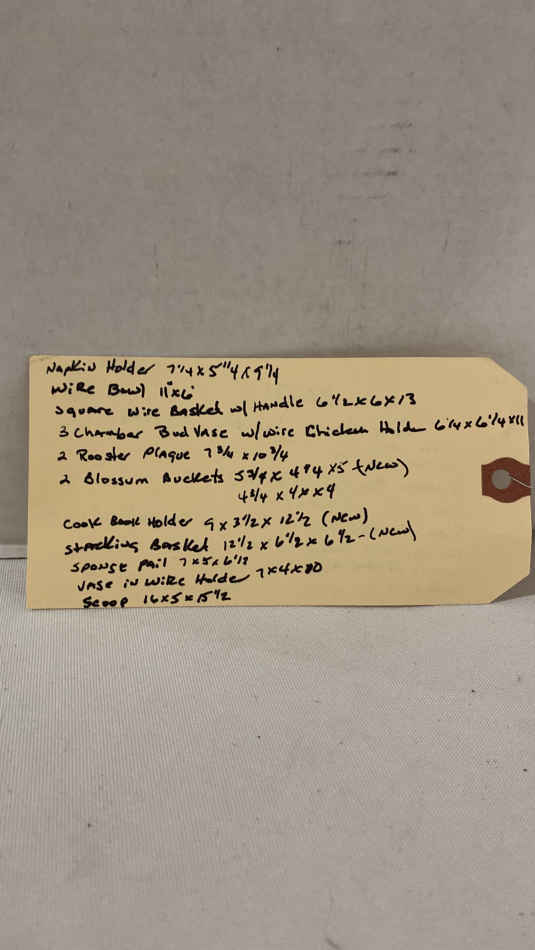 Napkin Holder 7 1/4 x 5 1/4 x 9 1/4
Wire Bowl 11" x 6"
Square Wire Basket w/ Handle 6 1/2 x 6 x 13
3 Chamber Bud Vase w/ wire Chicken Holder 6 1/4 x 6 1/4 x 11
2 Rooster Plaque 7 3/4 x 10 3/4
2 Blossum Buckets 5 3/4 x x 5 (New)
4 3/4 x 4 x x 4
Cook Book Holder 9 x 3 1/2 x 12 1/2 (New)
Stacking Basket 12 1/2 x 6 1/2 x 6 1/2 - (New)
Sponge Pail 7 x 5 x 6 1/2
Vase in Wire Holder 7 x 4 x
Scoop 16 x 5 x 15 1/2